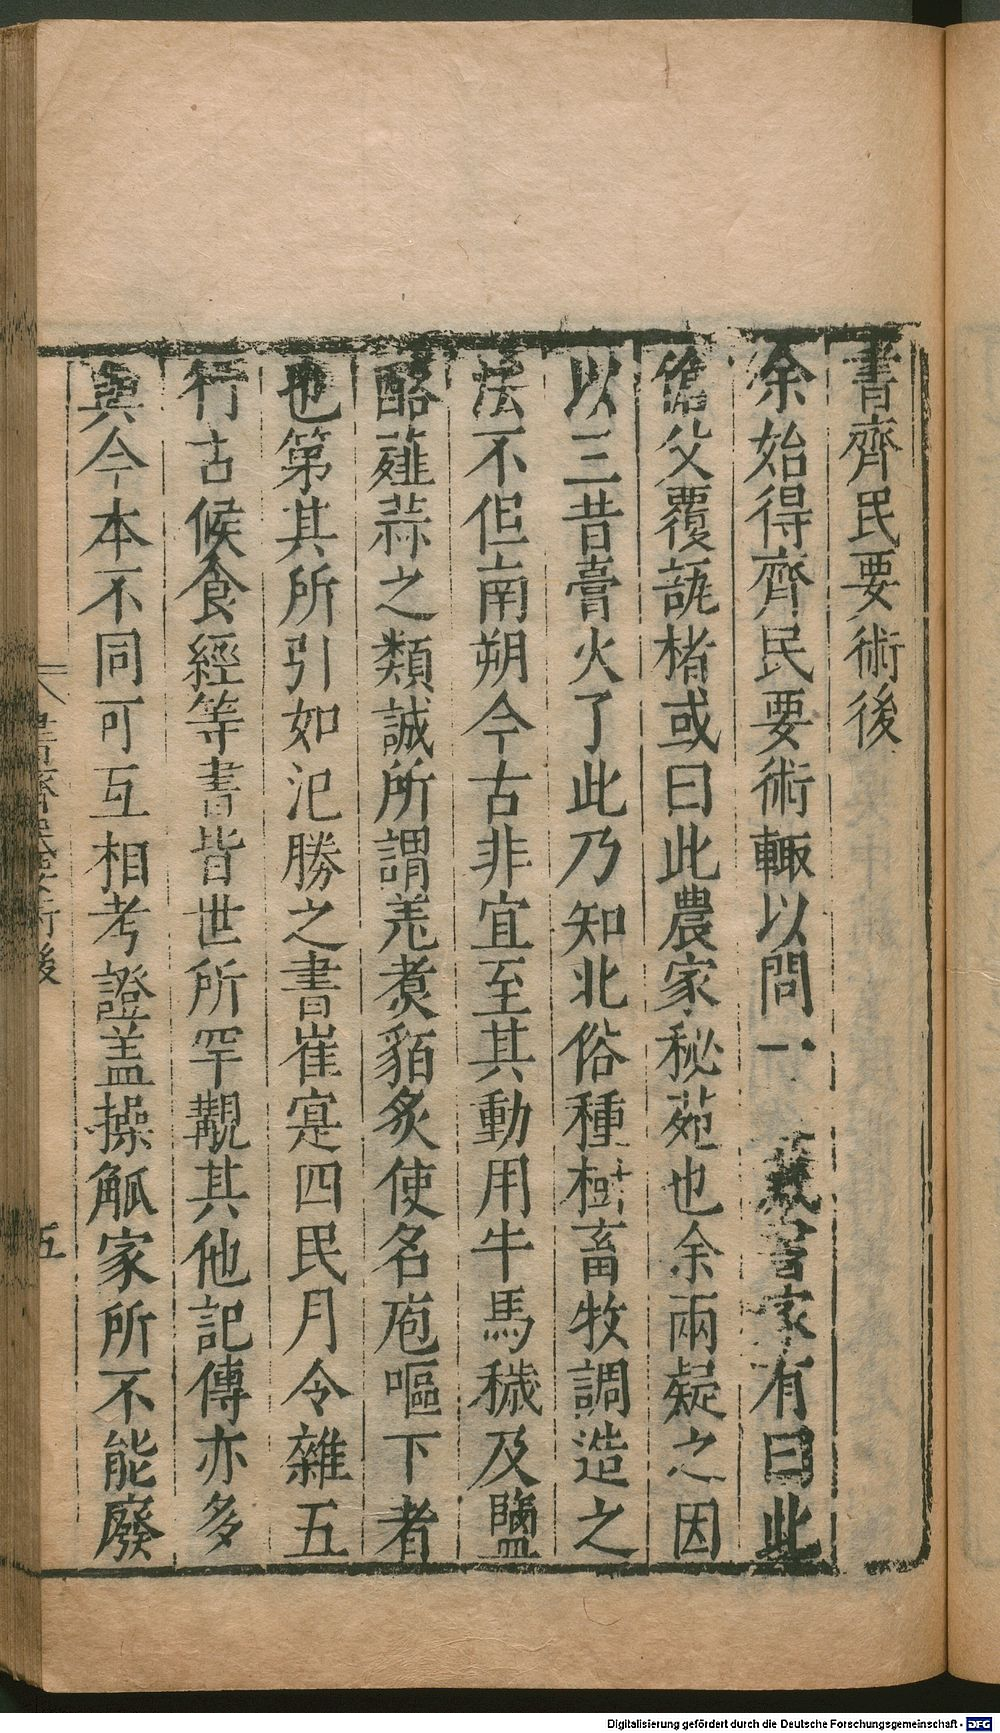 書齊民要術後
余始得齊民要術輙以問一二藏書家有曰此
傖父覆瓿楮或曰此農家秘苑也余兩疑之因
以三昔膏火了此乃知北俗種樹畜牧調造之
法不但南朔今古非宜至其動用牛馬穢及鹽
酪薤蒜之類誠所謂羌煮貊炙使名庖嘔下者
也第其所引如氾勝之書崔寔四民月令雜五
行古候食經等書皆世所罕覯其他記傳亦多
與今本不同可互相考證盖操觚家所不能廢
書齊民要術後
五
Digitalisierung gefördert durch die Deutsche Forschungsgemeinschaft - DFG